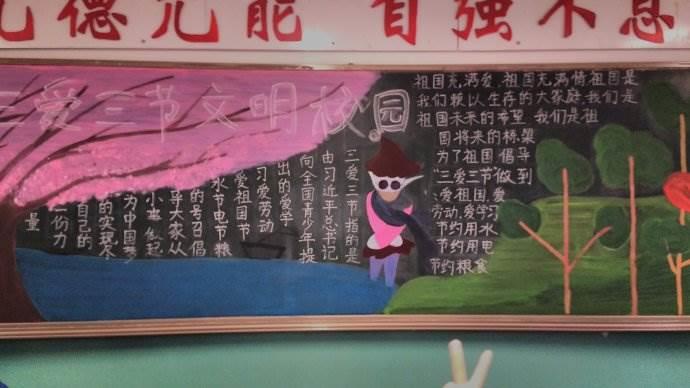 允德允能 自强不息
三爱三节文明校园
三爱三节指的是
由习近平总书记
向全国青少年提
出的爱学
习爱劳动
爱祖国节
水节电节粮
的号召倡
乎大家从
小事做起
为中国梦
的实现尽
自己的
一份力
量
祖国充满爱,祖国充满情祖国是
我们赖以生存的大家庭,我们是
祖国未来的希望,我们是祖
国将来的栋梁
为了祖国倡导
"三爱三节"做到
爱祖国,爱
劳动,爱学习
节约用水
节约用电
节约粮食